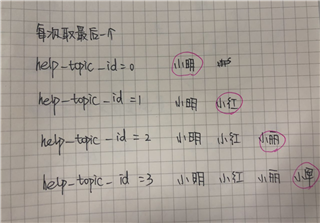 每次取最后一个
help-topic-id=0 小明
help-topic-id=1 小明 小红
help-topic-id=2 小明 小红 小丽
help-topic-id=3 小明 小红 小丽